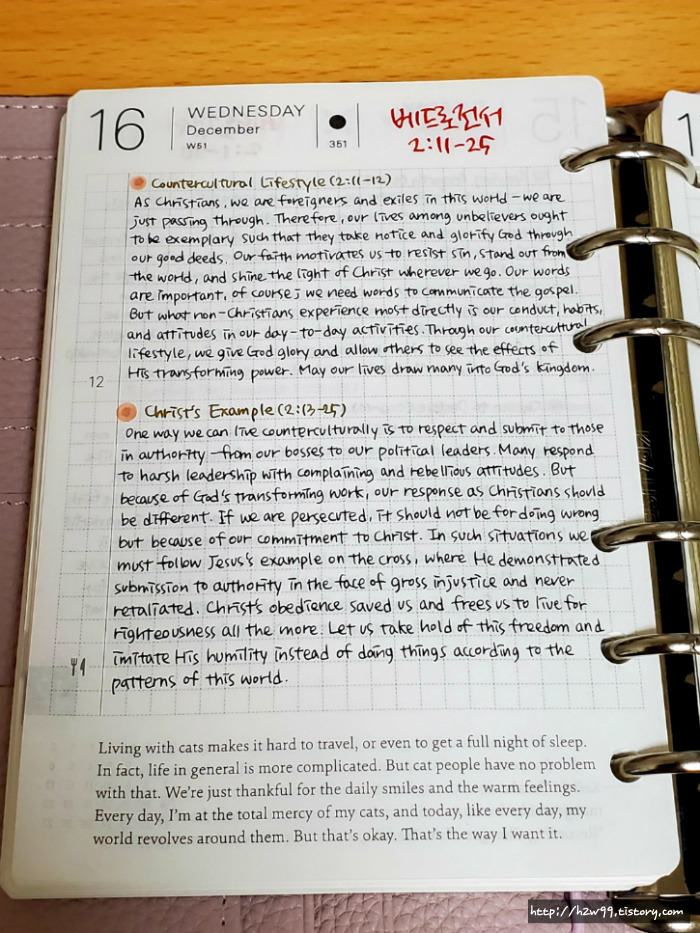 16
WEDNESDAY
December
W51
351
베드로전서
2:11-25
Countercultural Lifestyle (2:11-12)
As Christians, we are foreigners and exiles in this world - we are
just passing through. Therefore, our lives among unbelievers ought
to be exemplary such that they take notice and glorify God through
our good deeds. Our faith motivates us to resist sin, stand out from
the world, and shine the light of Christ wherever we go. Our words
are important, of course; we need words to communicate the gospel.
But what non-Christians experience most directly is our conduct, habits,
and attitudes in our day-to-day activities. Through our countercultural
lifestyle, we give God glory and allow others to see the effects of
His transforming power. May our lives draw many into God's kingdom.
12
Christ's Example (2:13-25)
One way we can live counterculturally is to respect and submit to those
in authority - from our bosses to our political leaders. Many respond
to harsh leadership with complaining and rebellious attitudes. But
because of God's transforming work, our response as Christians should
be different. If we are persecuted, it should not be for doing wrong
but because of our commitment to Christ. In such situations we
must follow Jesus's example on the cross, where He demonstrated
submission to authority in the face of gross injustice and never
retaliated. Christ's obedience saved us and frees us to live for
righteousness all the more. Let us take hold of this freedom and
imitate His humility instead of doing things according to the
patterns of this world.
Living with cats makes it hard to travel, or even to get a full night of sleep.
In fact, life in general is more complicated. But cat people have no problem
with that. We're just thankful for the daily smiles and the warm feelings.
Every day, I'm at the total mercy of my cats, and today, like every day, my
world revolves around them. But that's okay. That's the way I want it.
http://h2w99.tistory.com